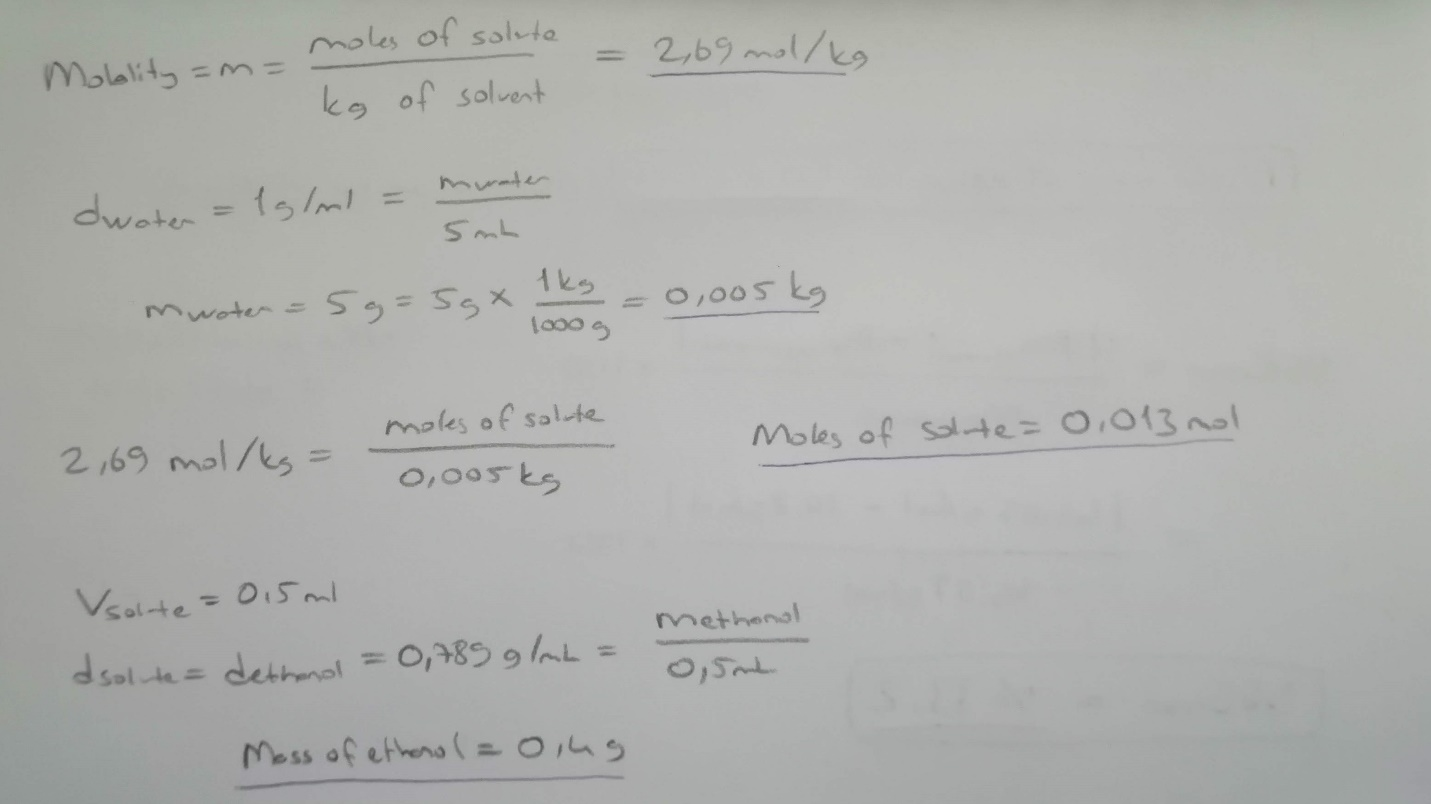 Molality = m = moles of solute / kg of solvent = 2,69 mol/kg
dwater = 1g/ml = mwater / 5 mL
mwater = 5 g = 5g x 1kg / 1000 g = 0,005 kg
2,69 mol/kg = moles of solute / 0,005 kg
Moles of solute = 0,013 mol
Vsolute = 0,5 ml
dsolute = dethanol = 0,789 g/mL = methanol / 0,5mL
Mass of ethanol = 0,4 g